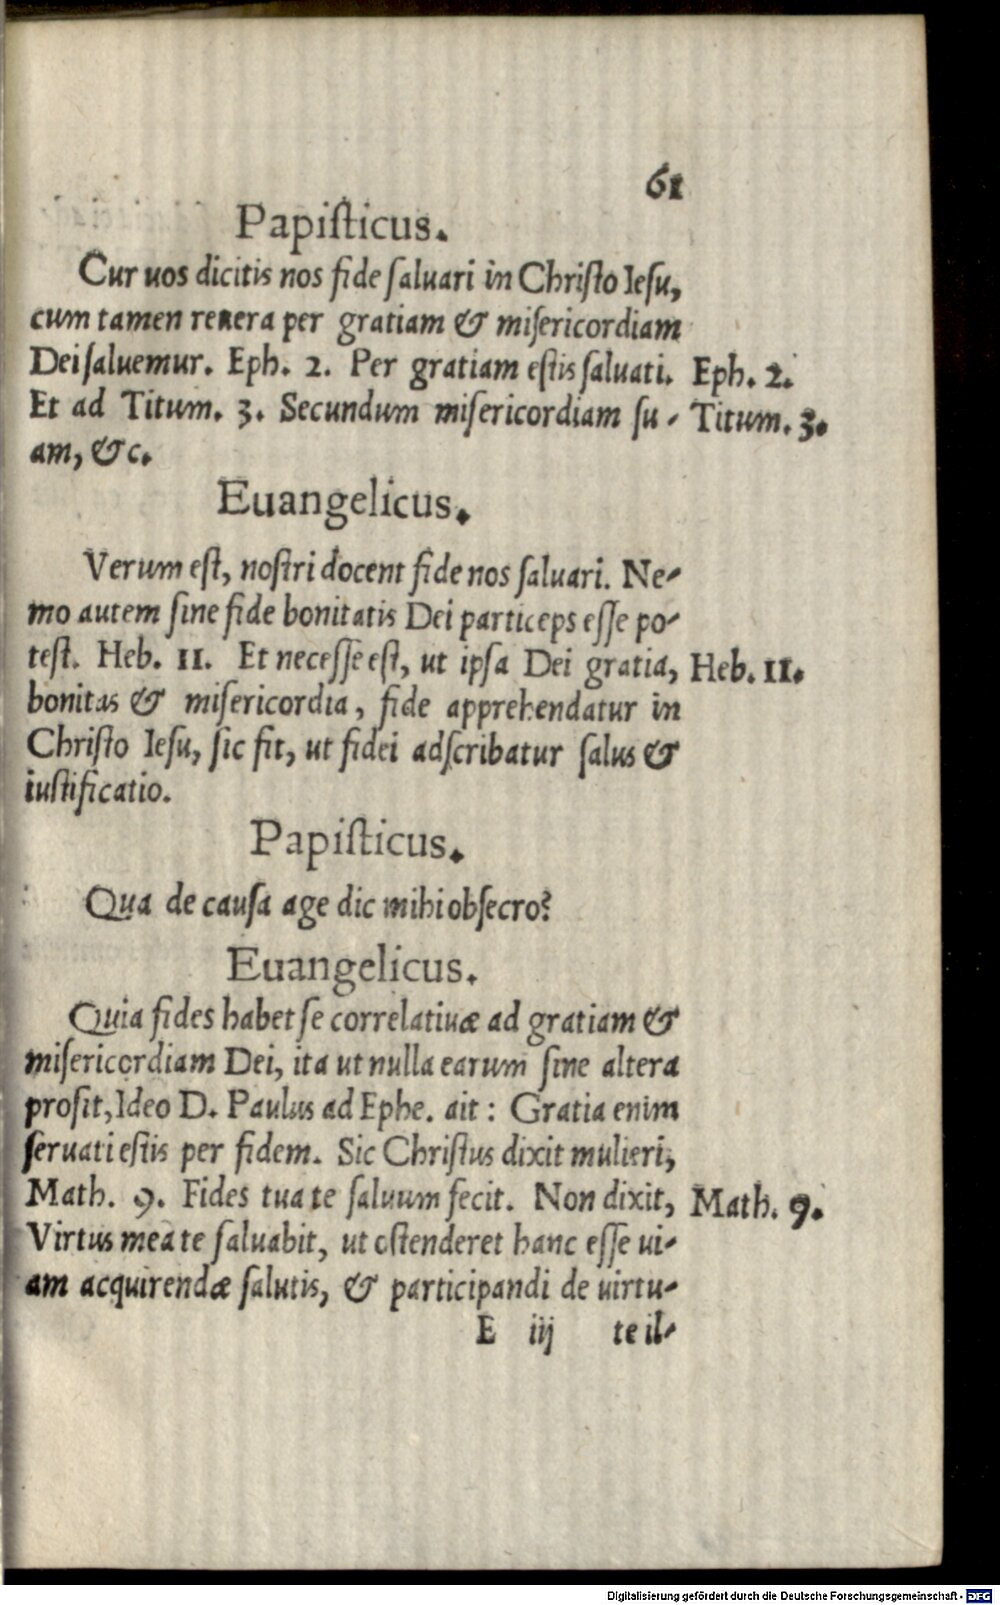 61
Papiſticus.
Cur uos dicitis nos fide ſaluari in Chriſto Ieſu,
cum tamen reuera per gratiam & miſericordiam
Dei ſaluemur. Eph. 2. Per gratiam eſtis ſaluati. Eph. 2.
Et ad Titum. 3. Secundum miſericordiam ſu- Titum. 3.
am, &c.
Euangelicus.
Verum eſt, noſtri docent fide nos ſaluari. Ne-
mo autem ſine fide bonitatis Dei particeps eſſe po-
teſt. Heb. 11. Et neceſſe eſt, ut ipſa Dei gratia, Heb. 11.
bonitas & miſericordia, fide apprehendatur in
Chriſto Ieſu, ſic fit, ut fidei adſcribatur ſalus &
iuſtificatio.
Papiſticus.
Qua de cauſa age dic mihi obſecro?
Euangelicus.
Quia fides habet ſe correlatiuæ ad gratiam &
miſericordiam Dei, ita ut nulla earum ſine altera
proſit, Ideo D. Paulus ad Ephe. ait: Gratia enim
ſeruati eſtis per fidem. Sic Chriſtus dixit mulieri,
Math. 9. Fides tua te ſaluum fecit. Non dixit, Math. 9.
Virtus mea te ſaluabit, ut oſtenderet hanc eſſe ui-
am acquirendæ ſalutis, & participandi de uirtu-
E iij te il-
Digitalisierung gefördert durch die Deutsche Forschungsgemeinschaft - DFG